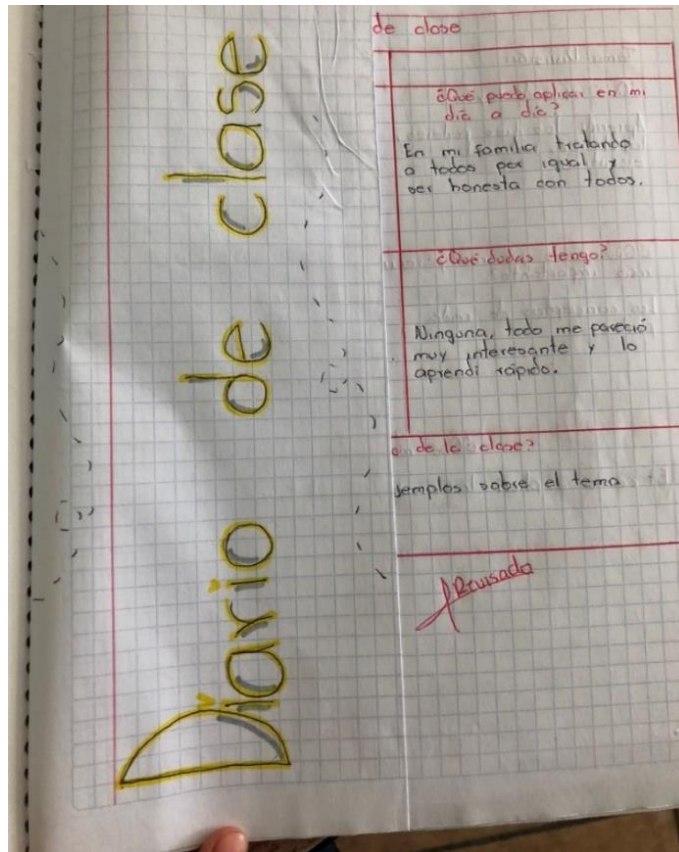 Diario de clase
de clase
¿Qué puedo aplicar en mi
día a día?
En mi familia tratando
a todos por igual y
ser honesta con todos.
¿Qué dudas tengo?
Ninguna, todo me pareció
muy interesante y lo
aprendi rápido.
de la clase?
ejemplos sobre el tema
Revisado